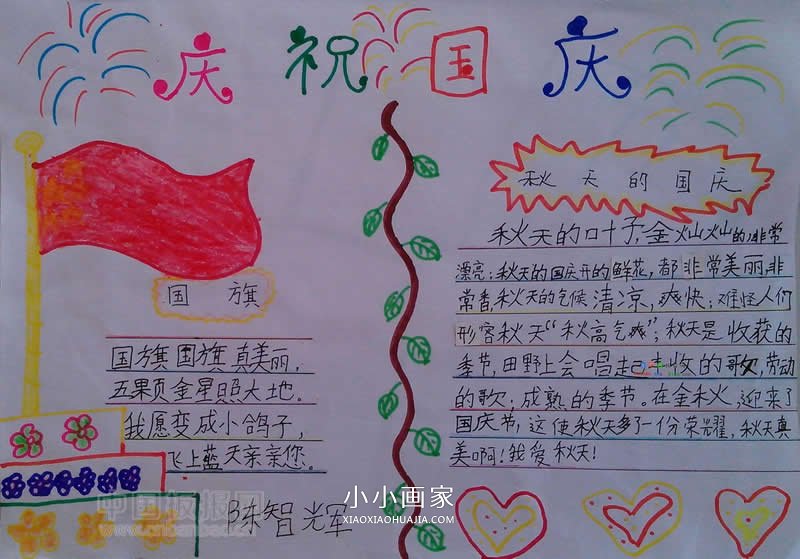 庆祝国庆
国旗
国旗国旗真美丽,
五颗金星照大地。
我愿变成小鸽子,
飞上蓝天亲亲您。
陈智辉
秋天的国庆
秋天的叶子,金灿灿的,非常
漂亮;秋天的国庆开的鲜花,都非常美丽,非
常香,秋天的气候清凉,爽快;难怪人们
形容秋天“秋高气爽”;秋天是收获的
季节,田野上会唱起丰收的歌,劳动
的歌;成熟的季节。在金秋,迎来了
国庆节,这使秋天多了一份荣耀,秋天真
美啊!我爱秋天!
小小画家
XIAOXIAOHUAJIA.COM